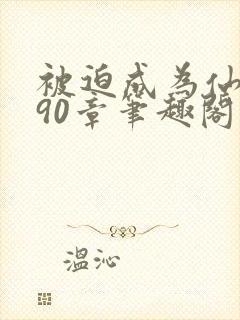 被迫成为仙
90章笔趣阁
温沁